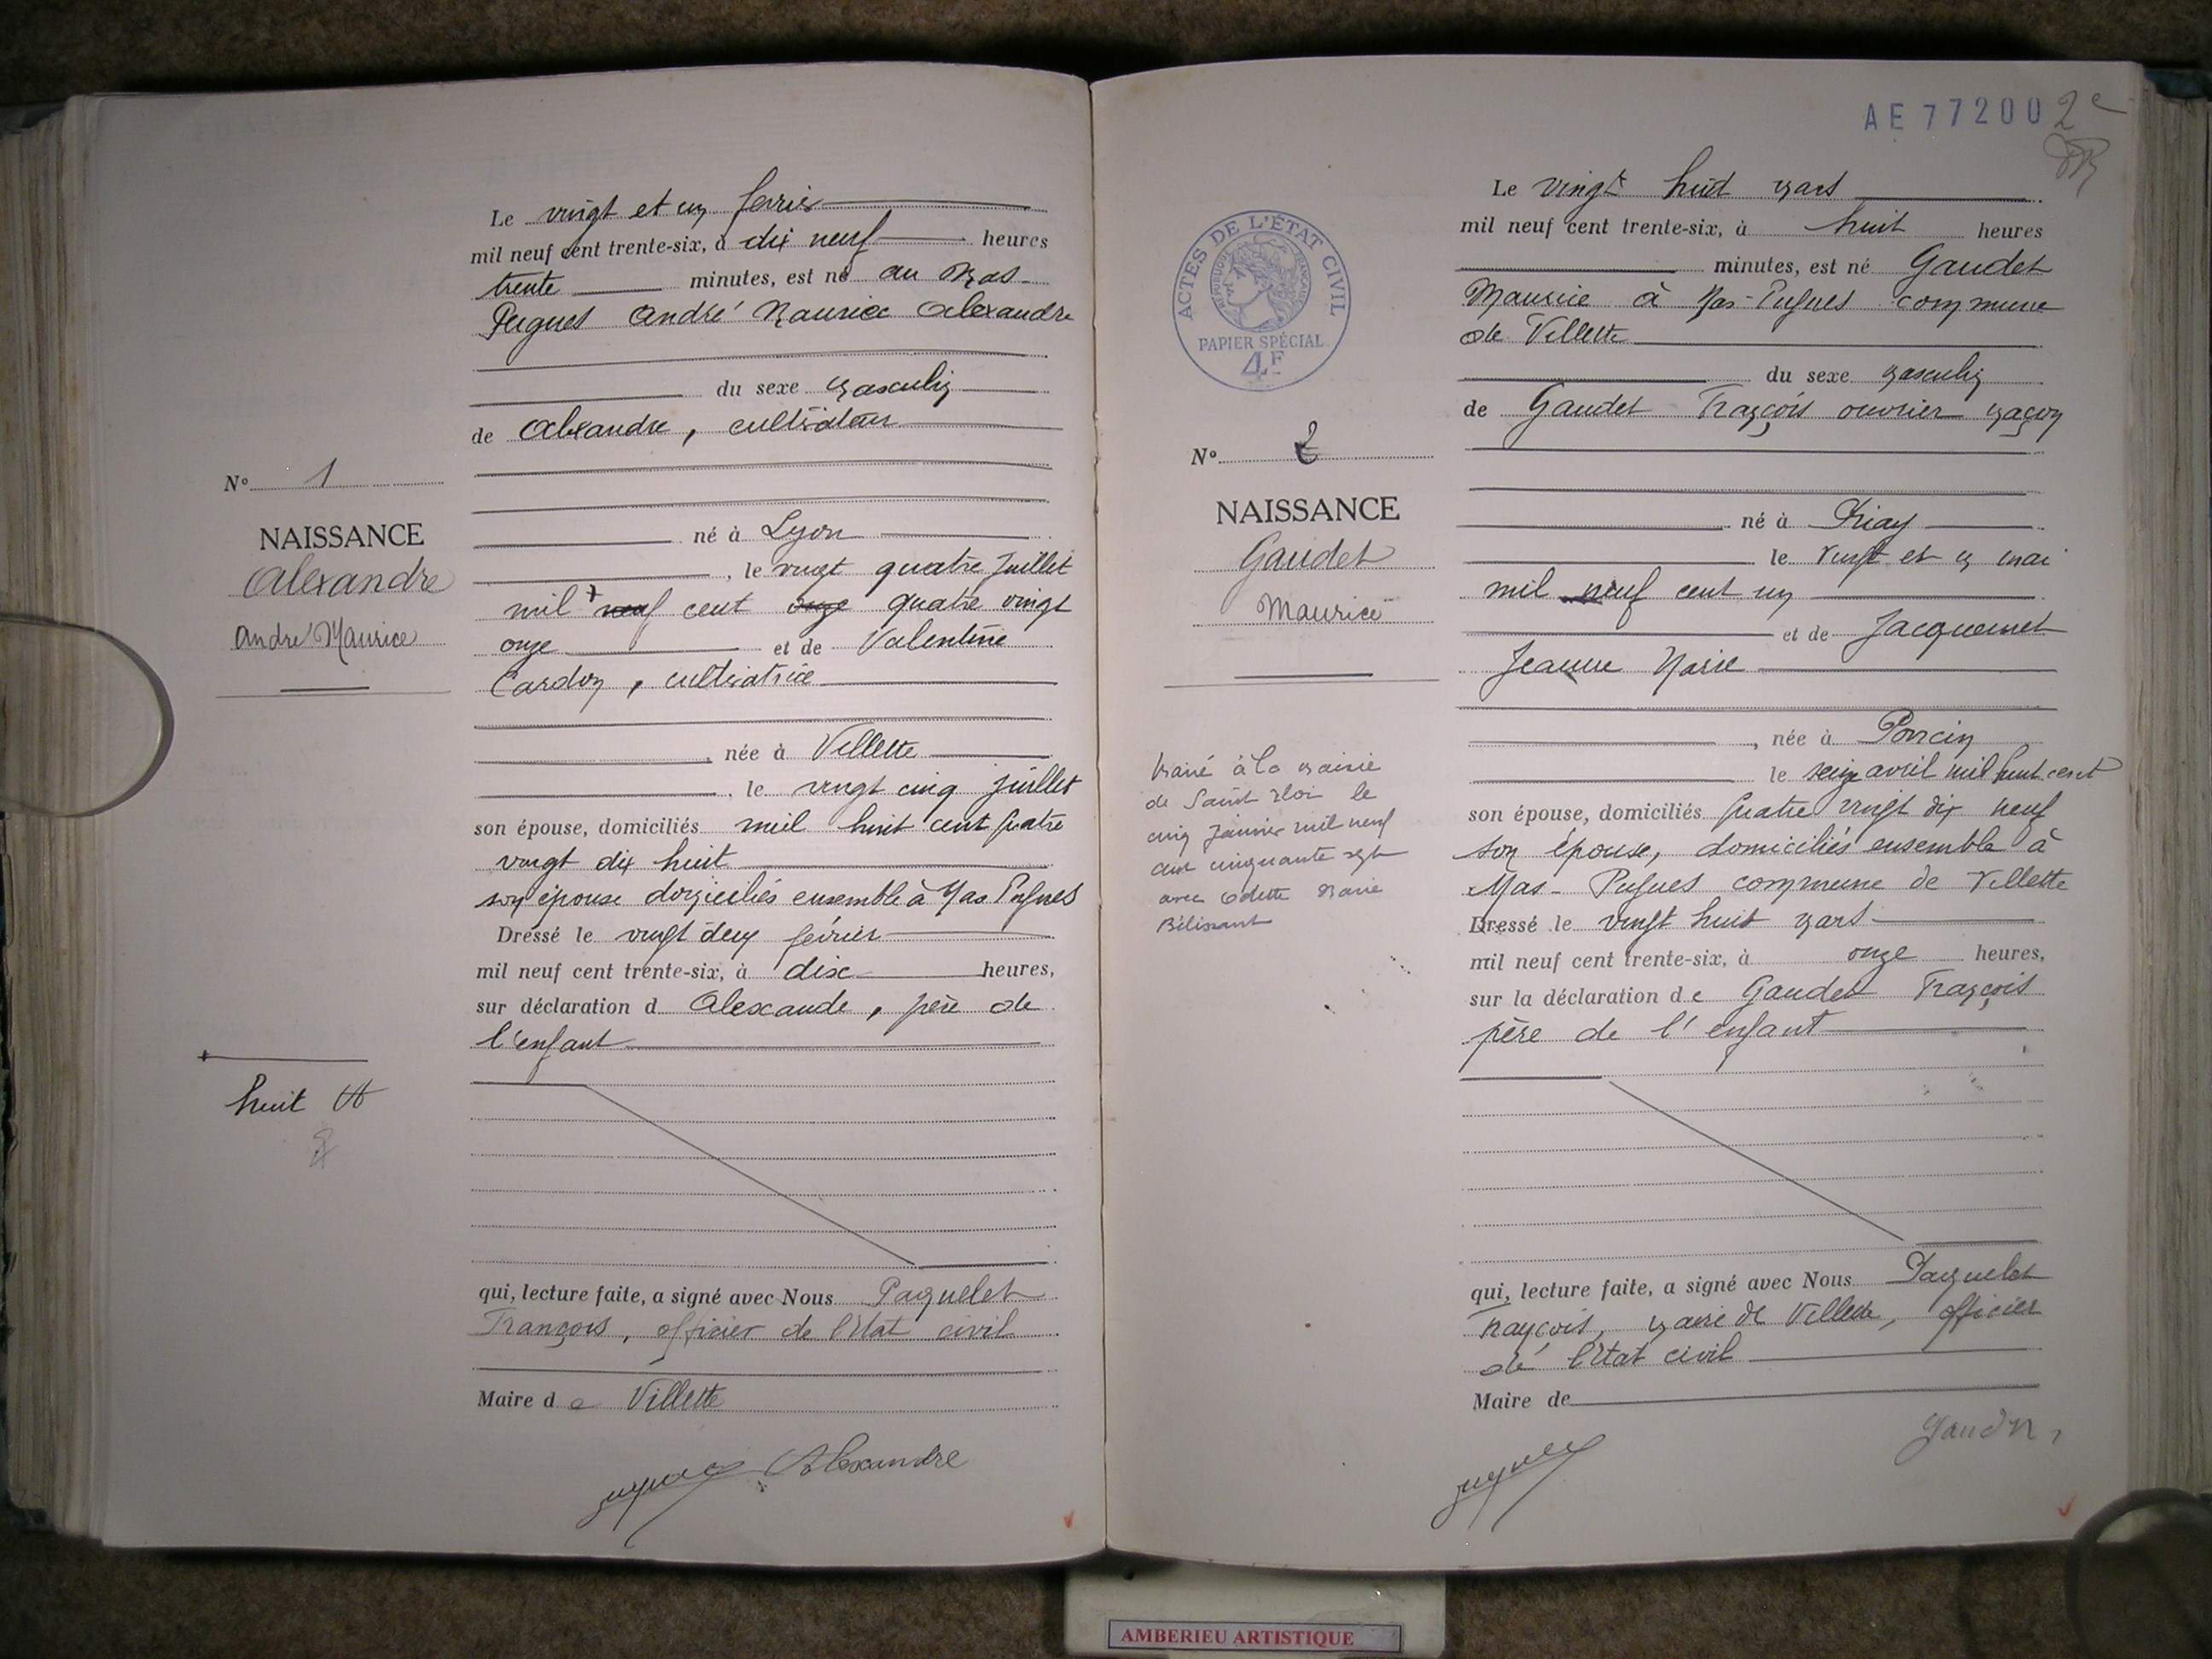 Le vingt et un fevrier
mil neuf cent trente-six, à dix neuf heures
trente minutes, est né au Mas
Pugues André Maurice Alexandre
du sexe masculin
de Alexandre, cultivateur
N° 1
NAISSANCE
Alexandre
André Maurice
né à Lyon
, le vingt quatre Juillet
mil neuf cent onze quatre vingt
onze et de Valentine
Cardon, cultivatrice
, née à Villette
, le vingt cinq juillet
son épouse, domiciliés mil huit cent quatre
vingt dix huit
son épouse domiciliés ensemble à Mas Pugues
Dressé le vingt deux février
mil neuf cent trente-six, à dix heures,
sur déclaration d Alexandre, père de
l'enfant
huit
qui, lecture faite, a signé avec Nous Paquelet
François, officier de l'Etat civil
Maire de Villette
Alexandre
AE 77200
2e
ACTES DE L'ÉTAT CIVIL
RÉPUBLIQUE FRANÇAISE
PAPIER SPÉCIAL
4F
Le vingt huit mars
mil neuf cent trente-six, à huit heures
minutes, est né Gaudet
Maurice à Mas-Pugues commune
de Villette
du sexe masculin
de Gaudet François ouvrier maçon
N° 2
NAISSANCE
Gaudet
Maurice
né à Priay
le vingt et un mai
mil neuf cent un
et de Jacquemet
Jeanne Marie
, née à Poncin
le seize avril mil huit cent
son épouse, domiciliés quatre vingt dix neuf
son épouse, domiciliés ensemble à
Mas-Pugues commune de Villette
Marié à la mairie
de Saint Eloi le
cinq Janvier mil neuf
cent cinquante sept
avec Odette Marie
Bélissant
Dressé le vingt huit mars
mil neuf cent trente-six, à onze heures,
sur la déclaration de Gaudet François
père de l'enfant
qui, lecture faite, a signé avec Nous Paquelet
François, maire de Villette, officier
de l'Etat civil
Maire de
AMBERIEU ARTISTIQUE